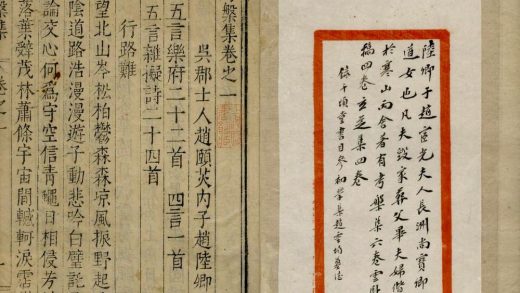 陸卿子趙宧光夫人長洲尚寶卿
道女也凡夫毀家葬父畢夫婦偕
於寒山而舍著有考槃集六卷雲臥
稿四卷玄芝集四卷
錄千頃堂書目參和
槃集卷之一
吳郡士人趙頤炎內子趙陸卿
五言樂府二十二首 四言一首
五言雜擬詩二十四首
行路難
望北山岑松柏鬱森森凉風振野起
陰道路浩漫漫遊子動悲吟白璧託
論交心何為守空信青蠅日相侵芳
落葉辭茂林蕭條宇宙間轗軻淚霑
槃集